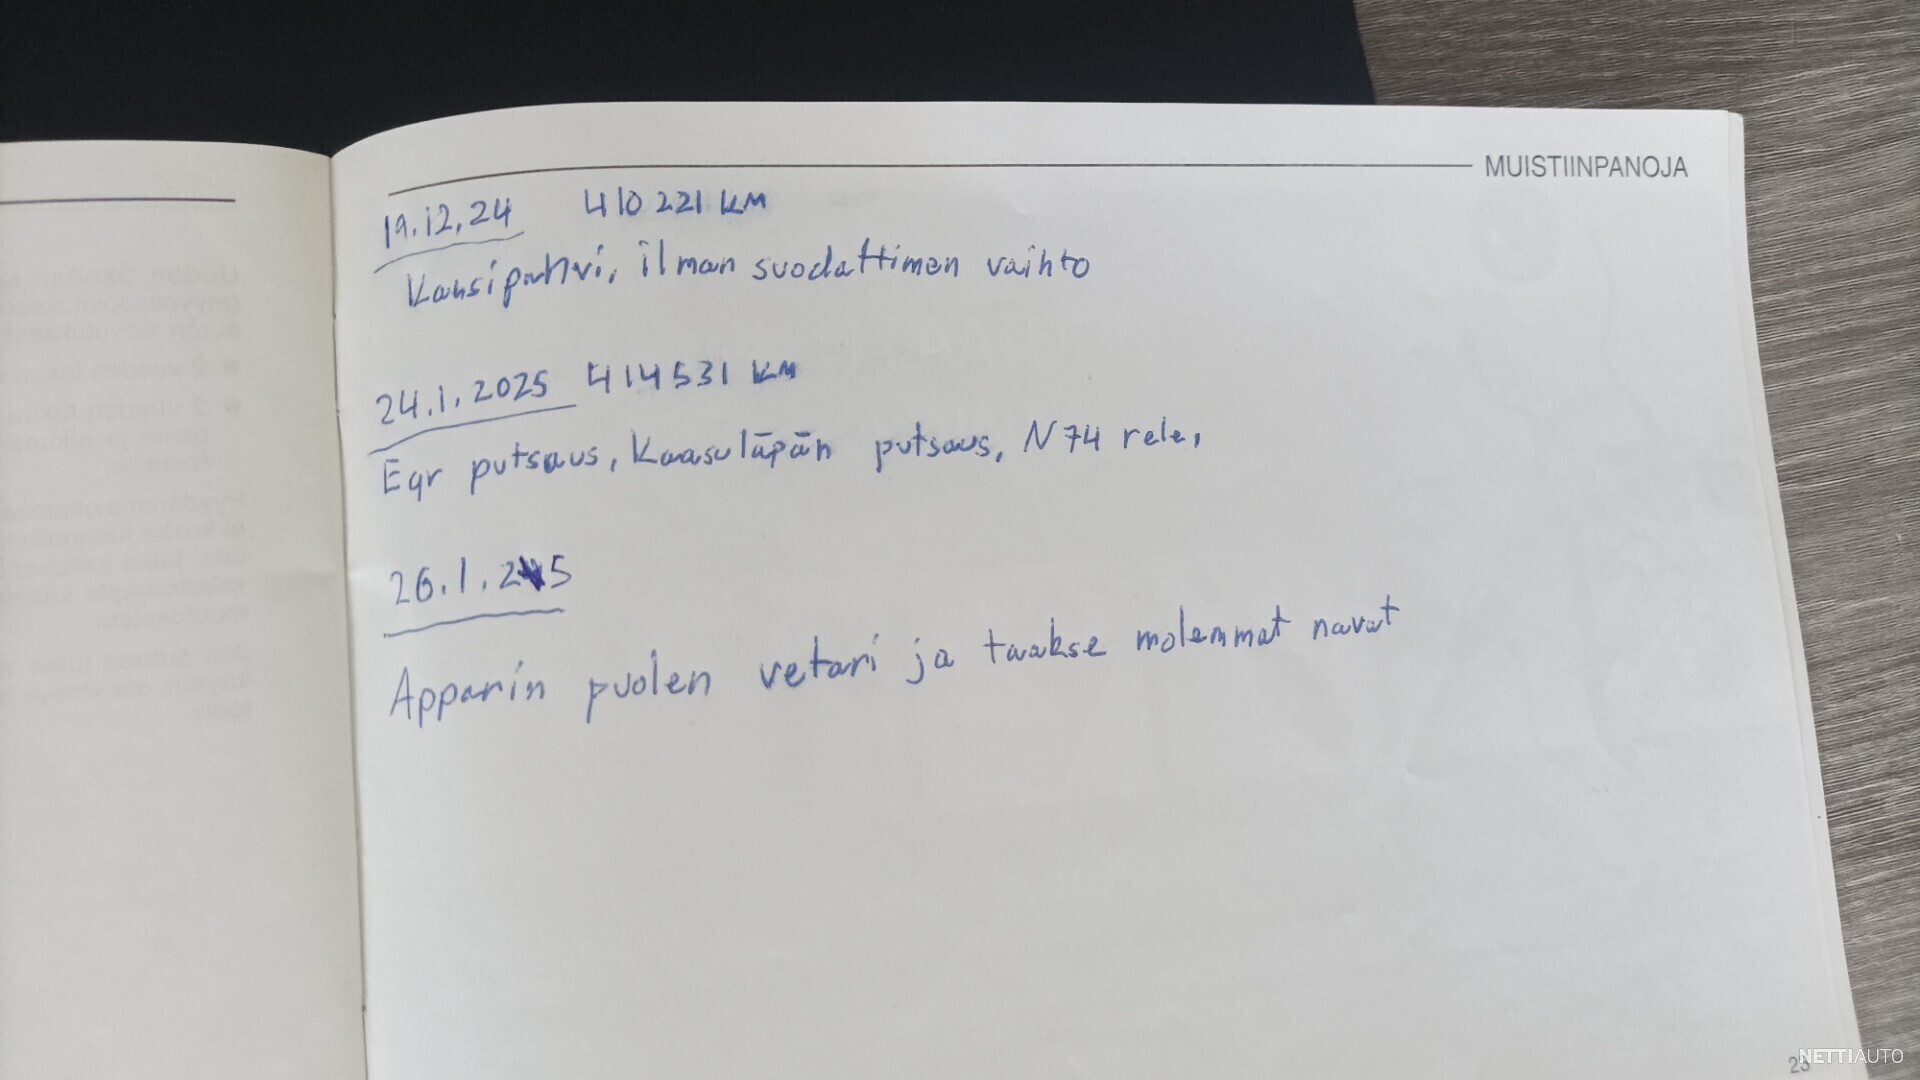 MUISTIINPANOJA
19.12.24 410 221 KM
Kansipahvi, ilman suodattimen vaihto
24.1.2025 414531 KM
Egr putsaus, Kaasuläpän putsaus, N74 rele,
26.1.25
Apparin puolen vetari ja taakse molemmat navat
NETTIAUTO